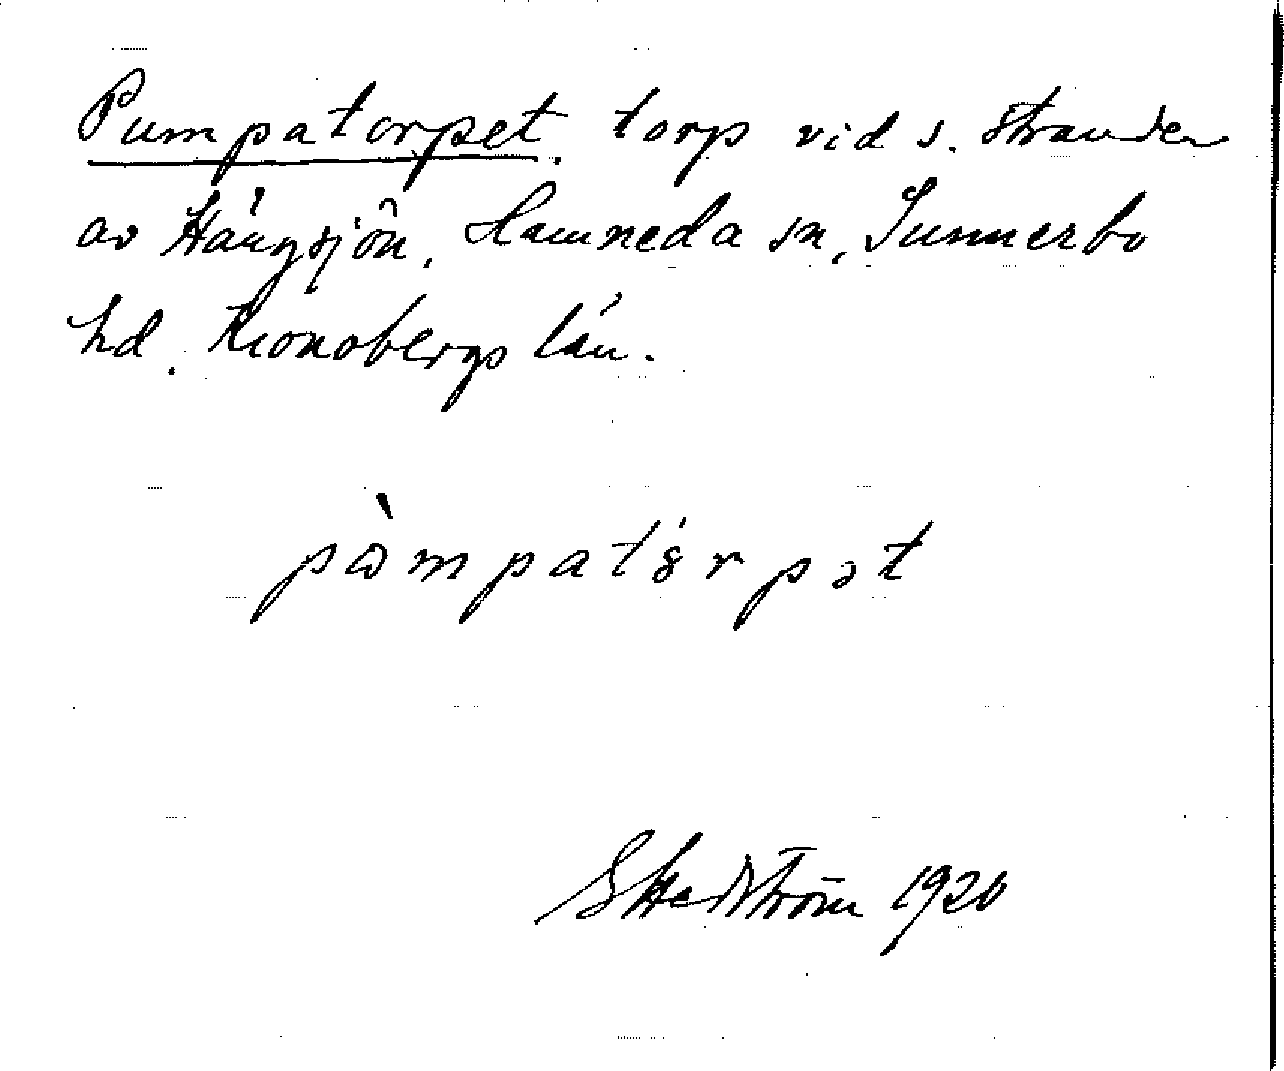 Pumpatorpet, torp vid s. stranden
av Hängsjön, Hamneda sn, Sunnerbo
hd, Kronobergs län.
pɷ̀mpatȣ́rpət
G Hedström 1920